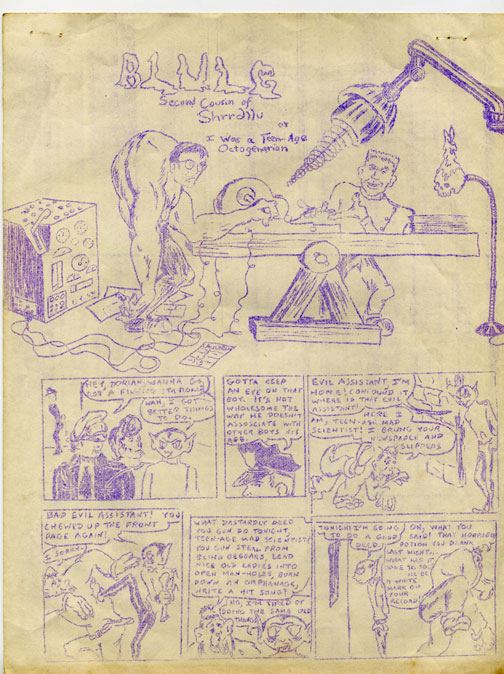 BLULG
Second Cousin of
Shrrdlu
or
I Was a Teen-Age
Octogenarian
HEY, DORIAN, WANNA GO
FOR A
NAH, I GOT
BETTER THINGS
TO DO.
GOTTA KEEP
AN EYE ON THAT
BOY. IT'S NOT
WHOLESOME THE
WAY HE DOESN'T
ASSOSCIATE WITH
OTHER BOYS HIS
AGE.
EVIL ASSISTANT I'M
HOME!
WHERE IS THAT EVIL
ASSISTANT!
HERE I
AM, TEEN-AGE MAD
SCIENTIST! I BRUNG YOUR
NEWSPAPER AND
SLIPPERS
BAD EVIL ASSISTANT! YOU
CHEWED UP THE FRONT
PAGE AGAIN!
SORRY
WHAT DASTARDLY DEED
YOU GUN DO TONIGHT,
TEEN-AGE MAD SCIENTIST?
YOU GUN STEAL FROM
BLIND BEGGARS, LEAD
NICE OLD LADIES INTO
OPEN MAN-HOLES, BURN
DOWN AN ORPHANAGE,
WRITE A HIT SONG?
NO, I'M TIRED OF
DOING THE SAME OLD
THINGS.
TONIGHT I'M GOING
TO DO A GOOD
DEED.
OH, WHAT YOU
SAID! THAT HORRIBLE
LAST NIGHT.
WHAT HAS IT
A WHITE
MARK ON
YOUR
RECORD!